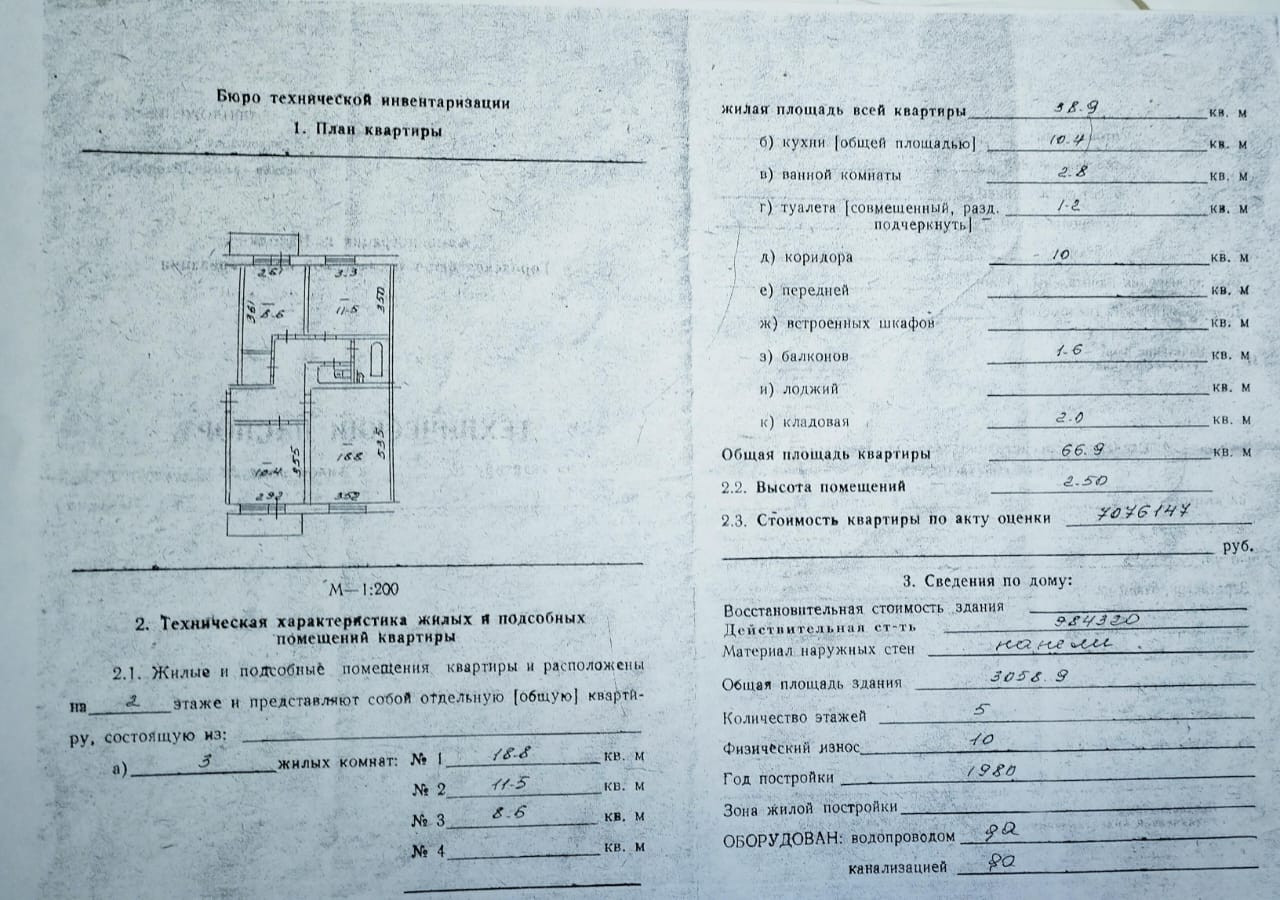 Бюро технической инвентаризации
1. План квартиры
2.61
3.3
361
8.6
11.5
350
18.8
535
10.4
355
292
352
М—1:200
2. Техническая характеристика жилых и подсобных
помещений квартиры
2.1. Жилые и подсобные помещения квартиры и расположены
на 2 этаже и представляют собой отдельную [общую] кварти-
ру, состоящую из:
а) 3 жилых комнат: № 1 18.8 кв. м
№ 2 11.5 кв. м
№ 3 8.6 кв. м
№ 4 кв. м
жилая площадь всей квартиры 38.9 кв. м
б) кухни [общей площадью] 10.4 кв. м
в) ванной комнаты 2.8 кв. м
г) туалета [совмещенный, разд. 1.2 кв. м
подчеркнуть]
д) коридора 10 кв. м
е) передней кв. м
ж) встроенных шкафов кв. м
з) балконов 1.6 кв. м
и) лоджий кв. м
к) кладовая 2.0 кв. м
Общая площадь квартиры 66.9 кв. м
2.2. Высота помещений 2.50
2.3. Стоимость квартиры по акту оценки 7076147
руб.
3. Сведения по дому:
Восстановительная стоимость здания
Действительная ст-ть 984320
Материал наружных стен панели
Общая площадь здания 3058.9
Количество этажей 5
Физический износ 10
Год постройки 1980
Зона жилой постройки
ОБОРУДОВАН: водопроводом да
канализацией да